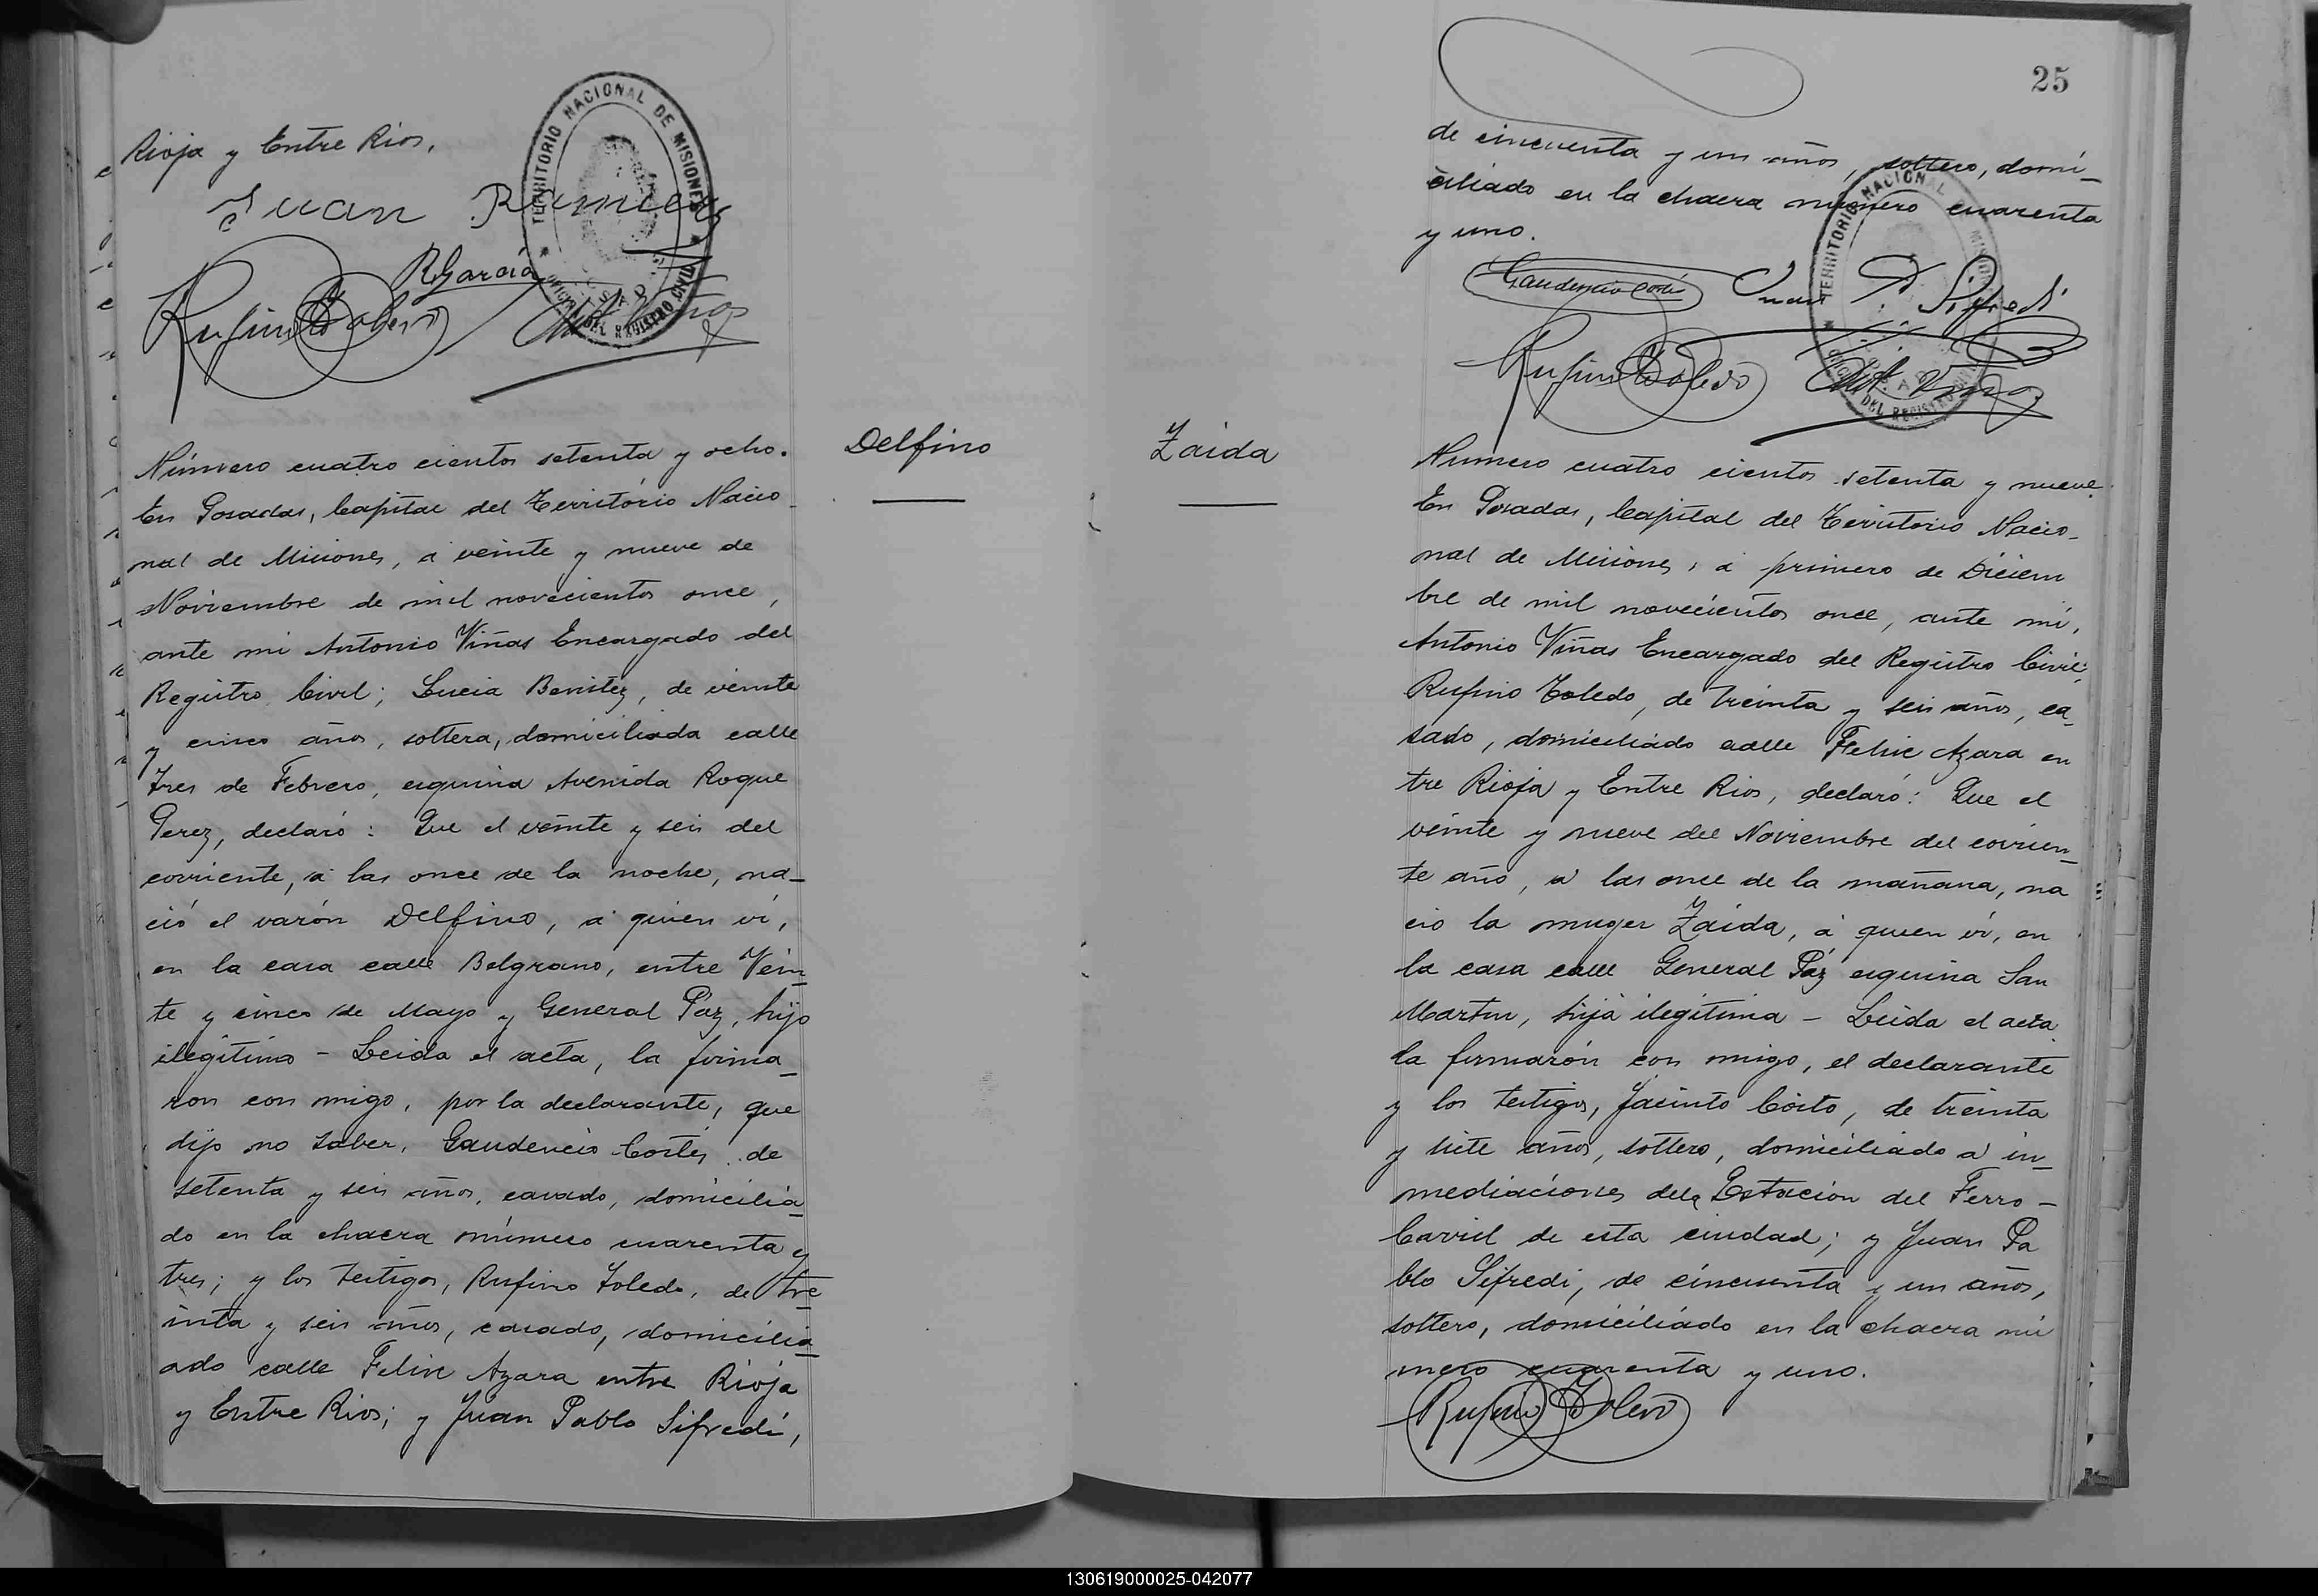 Rioja y Entre Rios,
Juan Ramirez
RGarcía
Rufino Toledo
Ant Viñas
TERRITORIO NACIONAL DE MISIONES
OFICINA DEL REGISTRO CIVIL
POSADAS
Número cuatro cientos setenta y ocho.
En Posadas, Capital del Território Nacio-
nal de Misiones, á veinte y nueve de
Noviembre de mil novecientos once,
ante mi Antonio Viñas Encargado del
Registro Civil; Lucia Benitez, de veinte
y cinco años, soltera, domiciliada calle
Tres de Febrero, esquina Avenida Roque
Perez, declaró: Que el veinte y seis del
corriente, á las once de la noche, na-
ció el varón Delfino, á quien ví,
en la casa calle Belgrano, entre Vein-
te y cinco de Mayo y General Páz, hijo
ilegítimo - Leida el acta, la firma-
ron con migo, por la declarante, que
dijo no saber, Gaudencio Cortés de
setenta y seis años, casado, domicilia-
do en la chacra número cuarenta y
tres; y los testigos, Rufino Toledo, de tre-
inta y seis años, casado, domicilia-
ado calle Felix Azara entre Rioja
y Entre Rios; y Juan Pablo Sifredi,
Delfino
25
de cincuenta y un años, soltero, domi-
ciliado en la chacra número cuarenta
y uno.
Gaudencio Cortés
Juan P. Sifredi
Rufino Toledo
Ant Viñas
TERRITORIO NACIONAL DE MISIONES
OFICINA DEL REGISTRO CIVIL
POSADAS
Zaida
Numero cuatro cientos setenta y nueve.
En Posadas, Capital del Territorio Nacio-
nal de Misiones, á primero de Diciem
bre de mil novecientos once, ante mí,
Antonio Viñas Encargado del Registro Civil;
Rufino Toledo, de treinta y seis años, ca-
sado, domiciliado calle Felix Azara en
tre Rioja y Entre Rios, declaró: Que el
veinte y nueve del Noviembre del corrien-
te año, á las once de la mañana, na
cio la muger Zaida, á quien ví, en
la casa calle General Páz esquina San
Martin, hija ilegitima - Leida el acta
la firmarón con migo, el declarante
y los testigos, Jacinto Costo, de treinta
y siete años, soltero, domiciliado a in-
mediaciones dela Estación del Ferro-
Carril de esta ciudad; y Juan Pa
blo Sifredi, de cincuenta y un años,
soltero, domiciliado en la chacra nú
mero cuarenta y uno.
Rufino Toledo
130619000025-042077